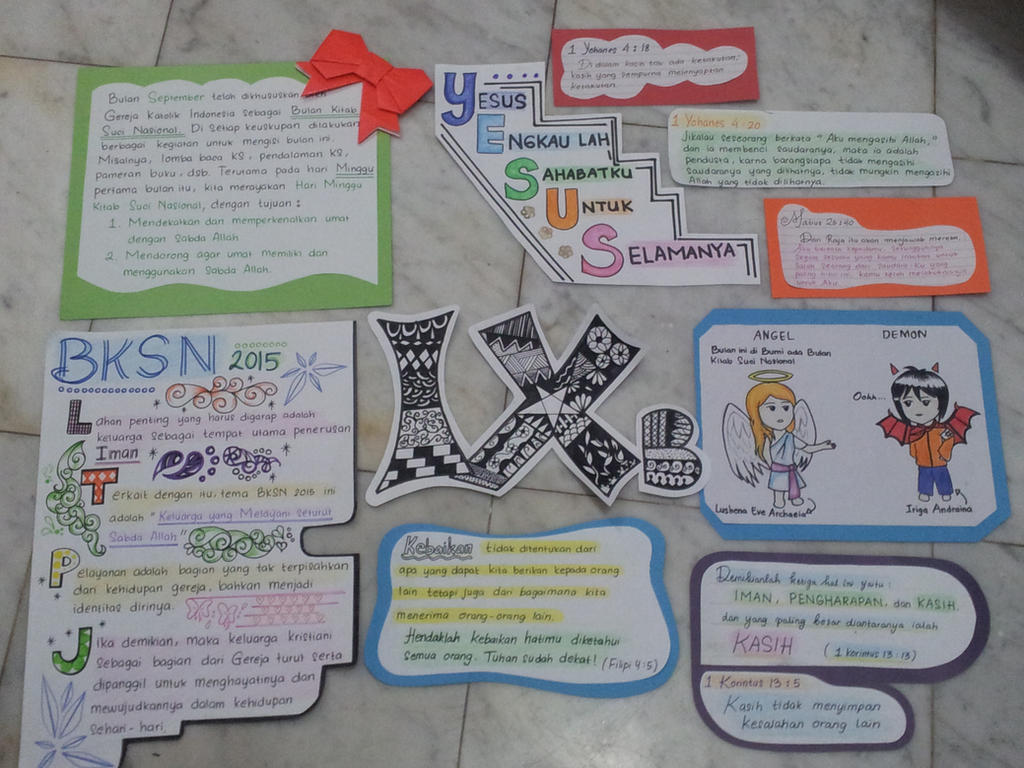 Bulan September telah dikhususkan oleh
Gereja Katolik Indonesia sebagai Bulan Kitab
Suci Nasional. Di setiap keuskupan dilakukan
berbagai kegiatan untuk mengisi bulan ini.
Misalnya, lomba baca KS, pendalaman KS,
pameran buku, dsb. Terutama pada hari Minggu
pertama bulan itu, kita merayakan Hari Minggu
Kitab Suci Nasional, dengan tujuan :
1. Mendekatkan dan memperkenalkan umat
dengan Sabda Allah
2. Mendorong agar umat memiliki dan
menggunakan Sabda Allah.
YESUS
ENGKAU LAH
SAHABATKU
UNTUK
SELAMANYA
1 Yohanes 4 : 18
Di dalam kasih tau ada ketakutan,
kasih yang sempurna melenyapkan
ketakutan.
1 Yohanes 4 : 20
Jikalau seseorang berkata "Aku mengasihi Allah,"
dan ia membenci saudaranya, maka ia adalah
pendusta, karna barangsiapa tidak mengasihi
saudaranya yang dilihatnya, tidak mungkin mengasihi
Allah yang tidak dilihatnya.
Matius 25:40
Dan Raja itu akan menjawab mereka,
Aku berkata kepadamu, sesungguhnya
segala sesuatu yang kamu lakukan untuk
salah seorang dari saudara-Ku yang
paling hina ini, kamu telah melakukannya
untuk Aku.
BKSN 2015
Lahan penting yang harus digarap adalah
keluarga sebagai tempat utama penerusan
Iman
Terkait dengan itu, tema BKSN 2015 ini
adalah "Keluarga yang Melayani seturut
Sabda Allah"
Pelayanan adalah bagian yang tak terpisahkan
dari kehidupan gereja, bahkan menjadi
identitas dirinya.
Jika demikian, maka keluarga kristiani
sebagai bagian dari Gereja turut serta
dipanggil untuk menghayatinya dan
mewujudkannya dalam kehidupan
sehari-hari.
IX B
ANGEL
DEMON
Bulan ini di Bumi ada Bulan
Kitab Suci Nasional
Oohh...
Lushena Eve Archaela
Iriga Andraina
Kebaikan tidak ditentukan dari
apa yang dapat kita berikan kepada orang
lain tetapi juga dari bagaimana kita
menerima orang-orang lain.
Hendaklah kebaikan hatimu diketahui
semua orang. Tuhan sudah dekat! (Filipi 4:5)
Demikianlah ketiga hal ini yaitu :
IMAN, PENGHARAPAN, dan KASIH.
dan yang paling besar diantaranya ialah
KASIH (1 korintus 13 : 13)
1 Korintus 13 : 5
Kasih tidak menyimpan
kesalahan orang lain